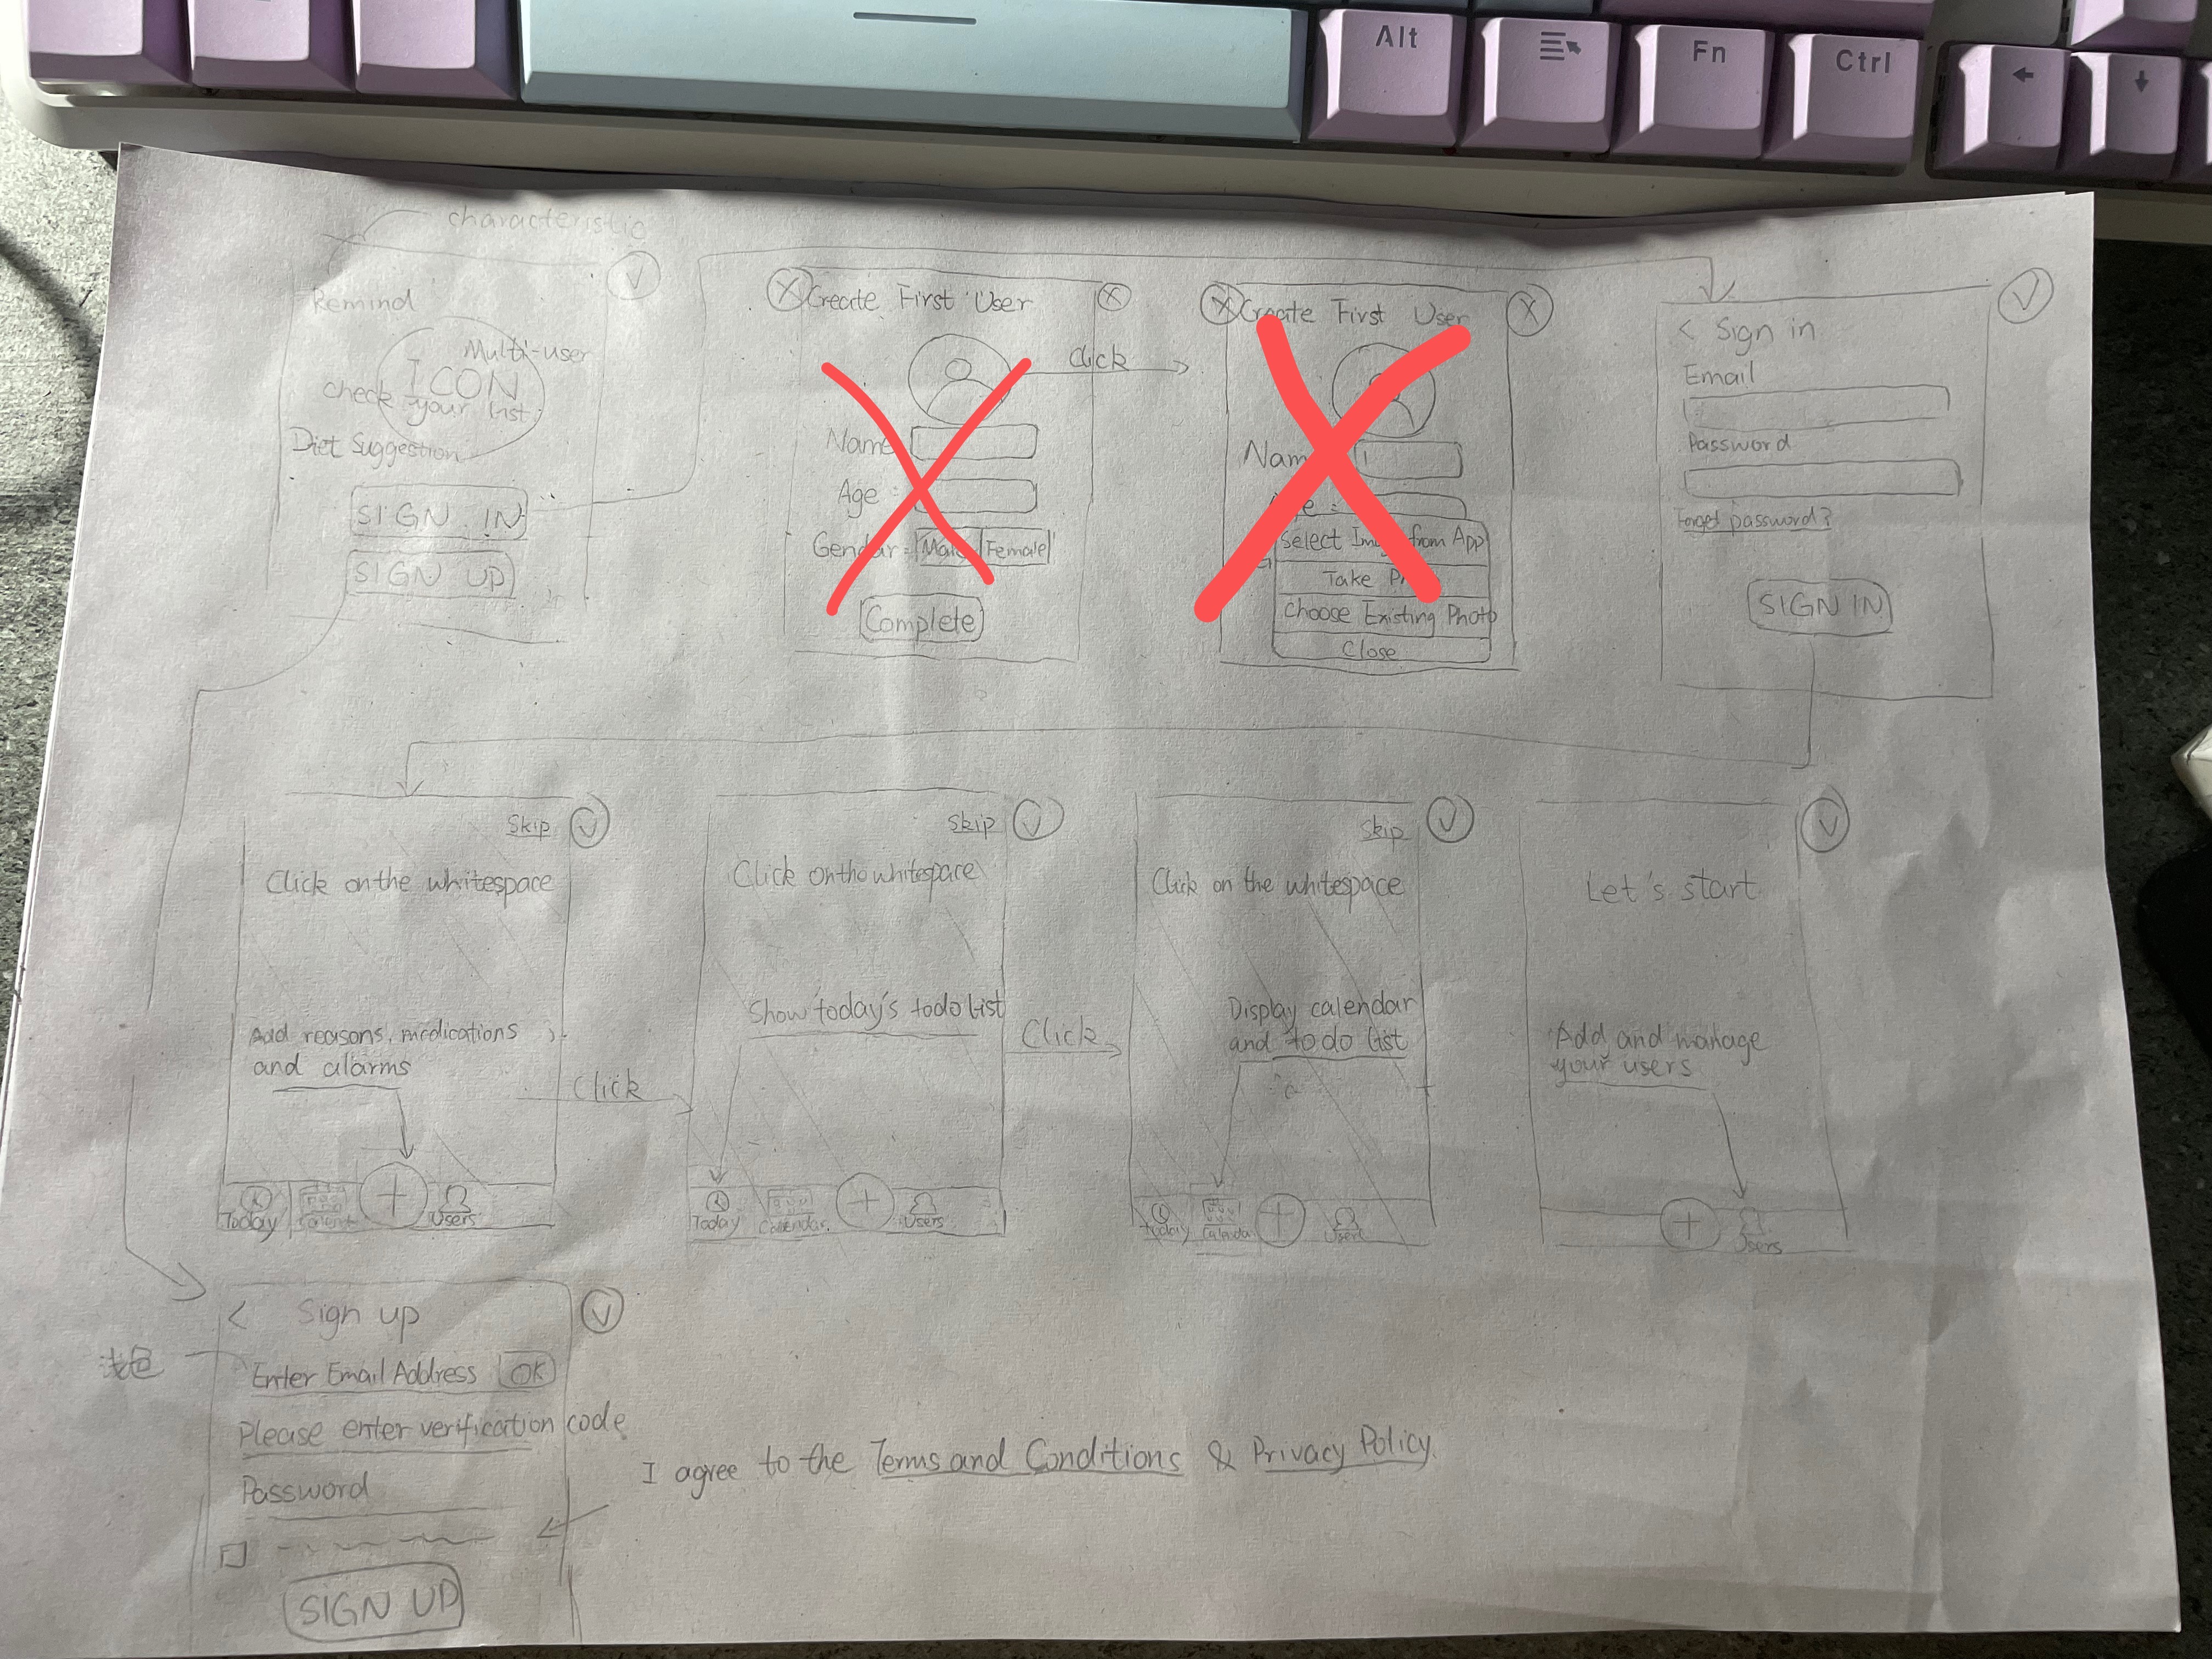 Alt
Fn
Ctrl
characteristic
Remind
Multi-user
ICON
check your list
Diet Suggestion
SIGN IN
SIGN UP
Create First User
Name
Age :
Gendar : Male Female
Complete
Click
Create First User
Nam
ge :
Select Im from App
Take P
Choose Existing Photo
Close
< Sign in
Email
Password
Forget password?
SIGN IN
Skip
Click on the whitespace
Add reasons, medications
and alarms
Today
Users
Click
Skip
Click on the whitespace
Show today's todo list
Today Calendar Users
Click
Skip
Click on the whitespace
Display calendar
and to do list
Today Calenda
Let's start
Add and manage
your users
Users
< Sign up
浅色
Enter Email Address OK
Please enter verification code
Password
I agree to the Terms and Conditions & Privacy Policy.
SIGN UP